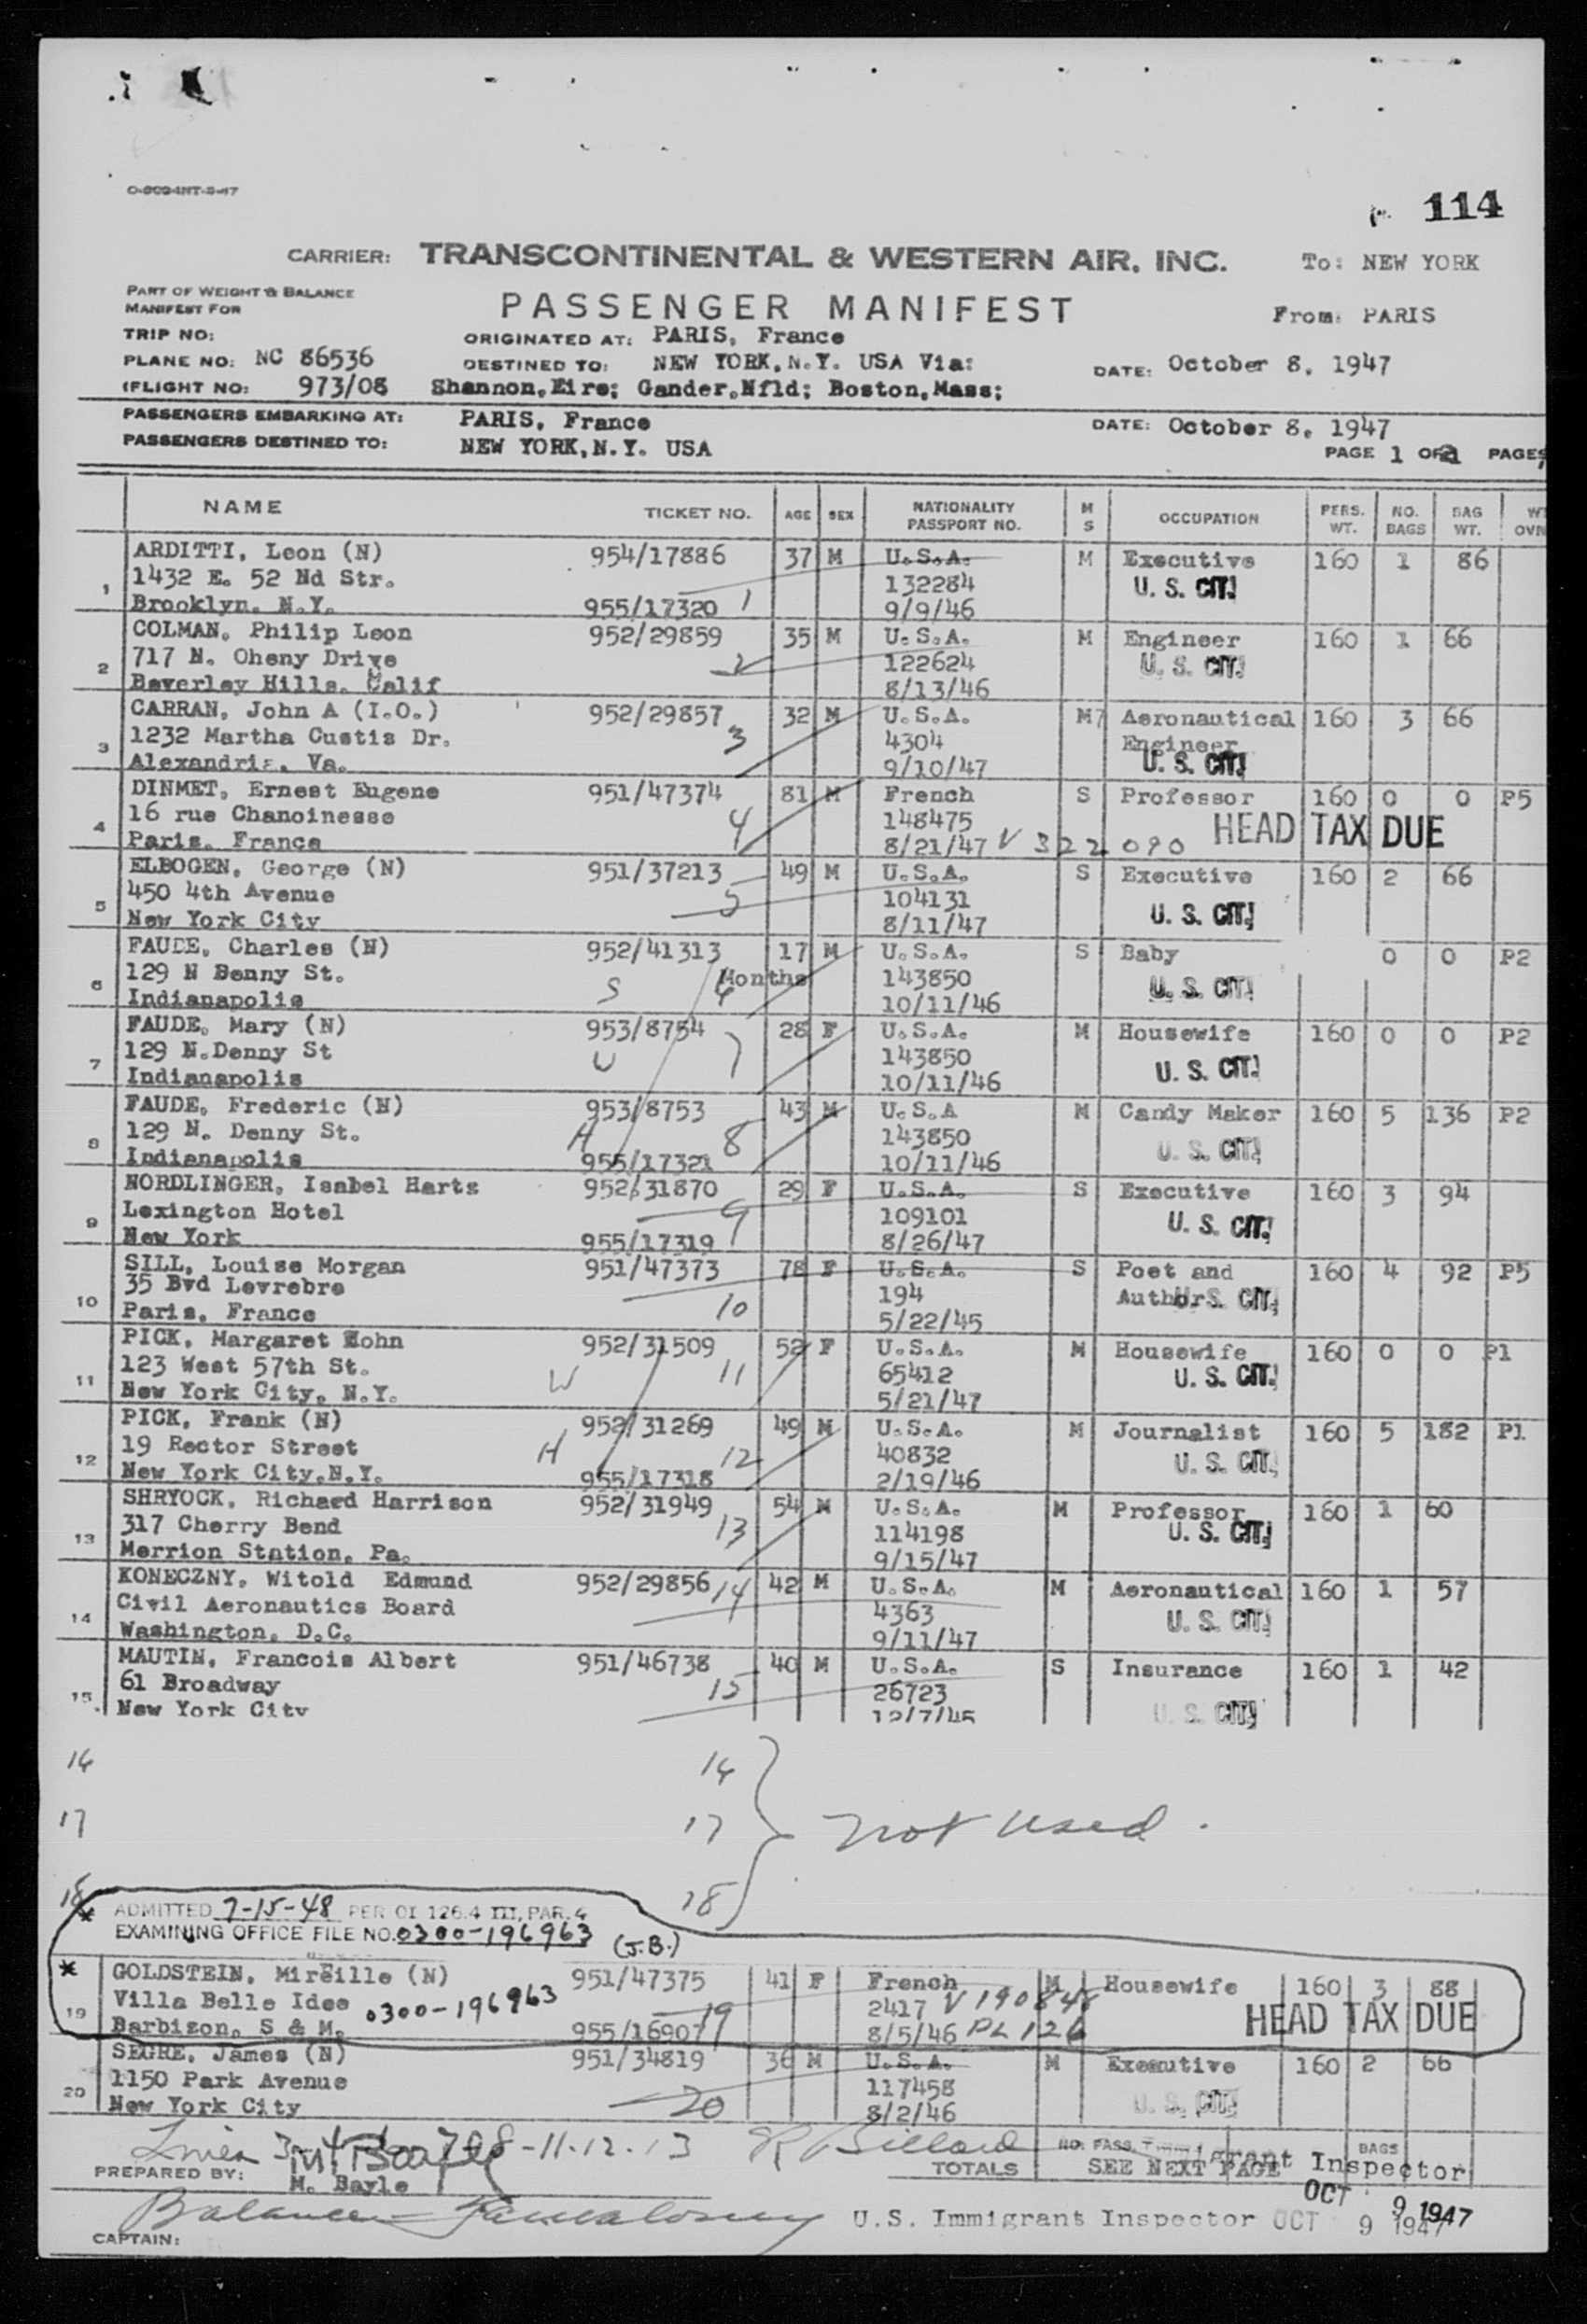 O-909-INT-9-47
114
CARRIER: TRANSCONTINENTAL & WESTERN AIR, INC. To: NEW YORK
PART OF WEIGHT & BALANCE
MANIFEST FOR
PASSENGER MANIFEST From: PARIS
TRIP NO: ORIGINATED AT: PARIS, France
PLANE NO: NC 86536 DESTINED TO: NEW YORK, N.Y. USA Via: DATE: October 8, 1947
(FLIGHT NO: 973/08 Shannon, Eire; Gander, Nfld; Boston, Mass;
PASSENGERS EMBARKING AT: PARIS, France DATE: October 8, 1947
PASSENGERS DESTINED TO: NEW YORK, N.Y. USA PAGE 1 OF 2 PAGES
NAME TICKET NO. AGE SEX NATIONALITY PASSPORT NO. M S OCCUPATION PERS. WT. NO. BAGS BAG WT.
ARDITTI, Leon (N) 954/17886 37 M U.S.A. M Executive 160 1 86
1 1432 E. 52 Nd Str. 132284 U. S. CIT.
Brooklyn. N.Y. 955/17320 1 9/9/46
COLMAN, Philip Leon 952/29859 35 M U.S.A. M Engineer 160 1 66
2 717 N. Oheny Drive 2 122624 U. S. CIT.
Beverley Hills. Calif 8/13/46
CARRAN, John A (I.O.) 952/29857 32 M U.S.A. M Aeronautical 160 3 66
3 1232 Martha Custis Dr. 3 4304 Engineer
Alexandria, Va. 9/10/47 U. S. CIT.
DINMET, Ernest Eugene 951/47374 81 M French S Professor 160 0 0 P5
4 16 rue Chanoinesse 4 148475 HEAD TAX DUE
Paris. France 8/21/47 V 322090
ELBOGEN, George (N) 951/37213 49 M U.S.A. S Executive 160 2 66
5 450 4th Avenue 5 104131 U. S. CIT.
New York City 8/11/47
FAUDE, Charles (N) 952/41313 17 M U.S.A. S Baby 0 0 P2
6 129 N Denny St. S 6 Months 143850 U. S. CIT.
Indianapolis 10/11/46
FAUDE, Mary (N) 953/8754 28 F U.S.A. M Housewife 160 0 0 P2
7 129 N.Denny St 7 143850 U. S. CIT.
Indianapolis 10/11/46
FAUDE, Frederic (N) 953/8753 43 M U.S.A M Candy Maker 160 5 136 P2
8 129 N. Denny St. H 8 143850 U. S. CIT.
Indianapolis 955/17321 10/11/46
NORDLINGER, Isabel Harts 952/31870 29 F U.S.A. S Executive 160 3 94
9 Lexington Hotel 9 109101 U. S. CIT.
New York 955/17319 8/26/47
SILL, Louise Morgan 951/47373 78 F U.S.A. S Poet and 160 4 92 P5
10 35 Bvd Levrebre 194 Author U. S. CIT.
Paris, France 10 5/22/45
PICK, Margaret Kohn 952/31509 52 F U.S.A. M Housewife 160 0 0 P1
11 123 West 57th St. W 11 65412 U. S. CIT.
New York City, N.Y. 5/21/47
PICK, Frank (N) 952/31269 49 M U.S.A. M Journalist 160 5 182 P1
12 19 Rector Street H 12 40832 U. S. CIT.
New York City.N.Y. 955/17318 2/19/46
SHRYOCK, Richard Harrison 952/31949 54 M U.S.A. M Professor 160 1 60
13 317 Cherry Bend 13 114198 U. S. CIT.
Merrion Station, Pa. 9/15/47
KONECZNY, Witold Edmund 952/29856 14 42 M U.S.A. M Aeronautical 160 1 57
14 Civil Aeronautics Board 4363 U. S. CIT.
Washington, D.C. 9/11/47
MAUTIN, Francois Albert 951/46738 40 M U.S.A. S Insurance 160 1 42
15 61 Broadway 15 26723 U. S. CIT.
New York City 12/7/45
16 16
17 17 not used.
18 18
* ADMITTED 7-15-48 PER OI 126.4 III, PAR. 4
EXAMINING OFFICE FILE NO. 0300-196963 (J.B.)
* GOLDSTEIN, Mireille (N) 951/47375 41 F French M Housewife 160 3 88
19 Villa Belle Idee 0300-196963 19 2417 V 190848 HEAD TAX DUE
Barbizon, S & M. 955/16907 8/5/46 PL 126
SEGRE, James (N) 951/34819 36 M U.S.A. M Executive 160 2 66
20 1150 Park Avenue 20 117458 U. S. CIT.
New York City 8/2/46
Lines 3-4-6-7-8-11-12-13 NO. PASS. BAGS
PREPARED BY: M. Bayle TOTALS SEE NEXT PAGE Immigrant Inspector
OCT 9 1947
U.S. Immigrant Inspector OCT 9 1947
CAPTAIN: